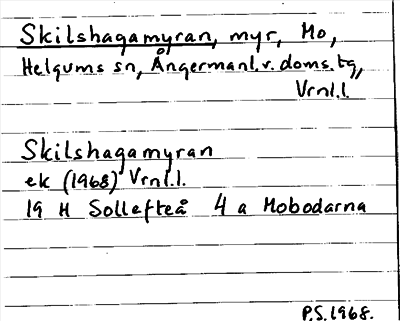 Skilshagamyran, myr, Mo,
Helgums sn, Ångermanl.v.doms.tg,
Vrnl.l
Skilshagamyran
ek (1968) Vrnl.l.
19 H Sollefteå 4 a Mobodarna
P.S.1968.